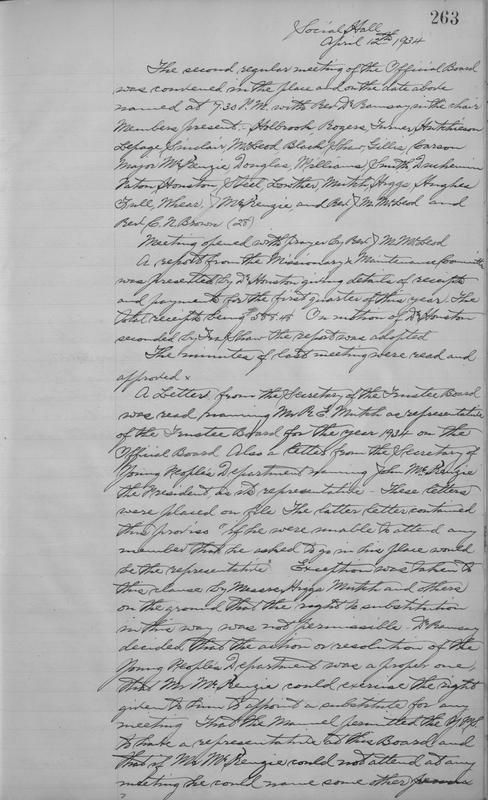 263
Social Hall
April 12th 1934
The second regular meeting of the Official Board
was convened in the place and on the date above
named at 7.30 P.M. with Rev Dr Ramsay in the chair
Members present - Holbrook Rogers, Turner, Hutchieson
Lepage, Sinclair, McLeod Black, Shaw, Gillis, Carson
Major McKenzie, Douglas, Williams, Smith, Duchemin
Paton, Houston, Steel, Lowther, Mutch, Higgs, Hughes
Trull, Whear, J McKenzie, and Rev J M McLeod and
Rev. C. N. Brown (28)
Meeting opened with prayer by Rev J M McLeod
A report from the Missionary & Maintenance Committee
was presented by Dr Houston giving details of receipts
and payments for the first quarter of this year. The
total receipts being 388.48 On motion of Dr Houston
seconded by Shaw the report was adopted
The minutes of last meeting were read and
approved
A Letter from the Secretary of the Trustee Board
was read naming Mr R. E. Mutch as representative
of the Trustee Board for the year 1934 on the
Official Board Also a letter from the Secretary of
Young Peoples Department naming John McKenzie
the President, as its representative - These letters
were placed on file The latter letter contained
this proviso "if he were unable to attend any
member that he asked to go in his place would
be the representative" Exception was taken to
this clause by Messrs Higgs Mutch and others
on the ground that the right to substitution
in this way was not permissible Dr Ramsay
decided that the action or resolution of the
Young Peoples Department was a proper one,
that Mr McKenzie could exercise the right
given to him to appoint a substitute for any
meeting That the Manuel permitted the
to have a representative at this Board and
that if Mr McKenzie could not attend at any
meeting he could name some other